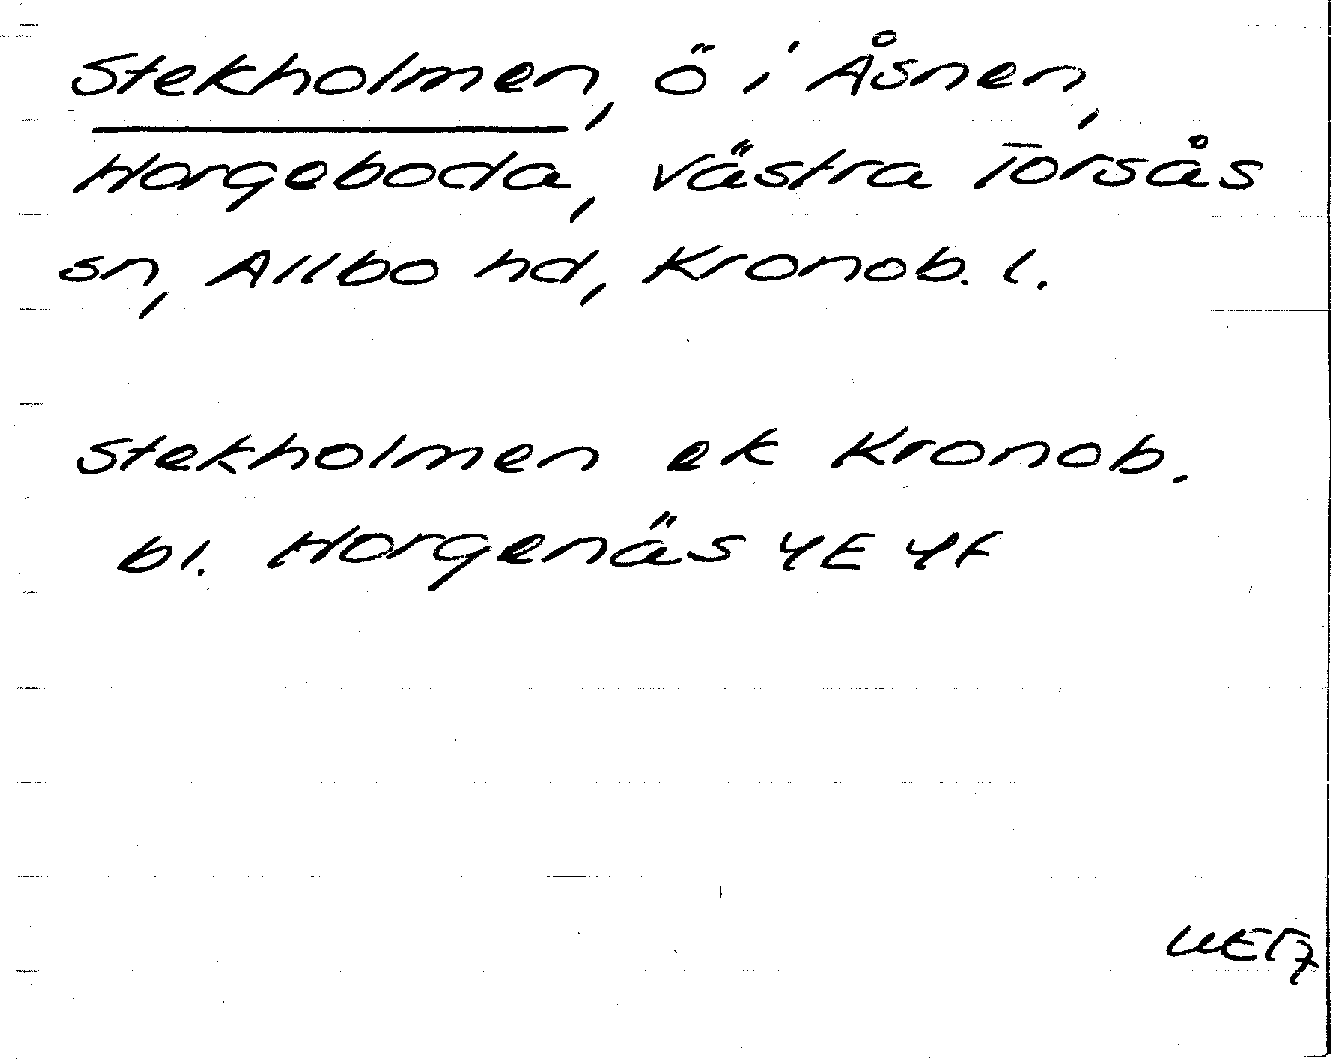 Stekholmen, ö i Åsnen,
Horgeboda, Västra Torsås
sn, Allbo hd, Kronob. l.
Stekholmen ek Kronob.
bl. Horgenäs 4E 4F